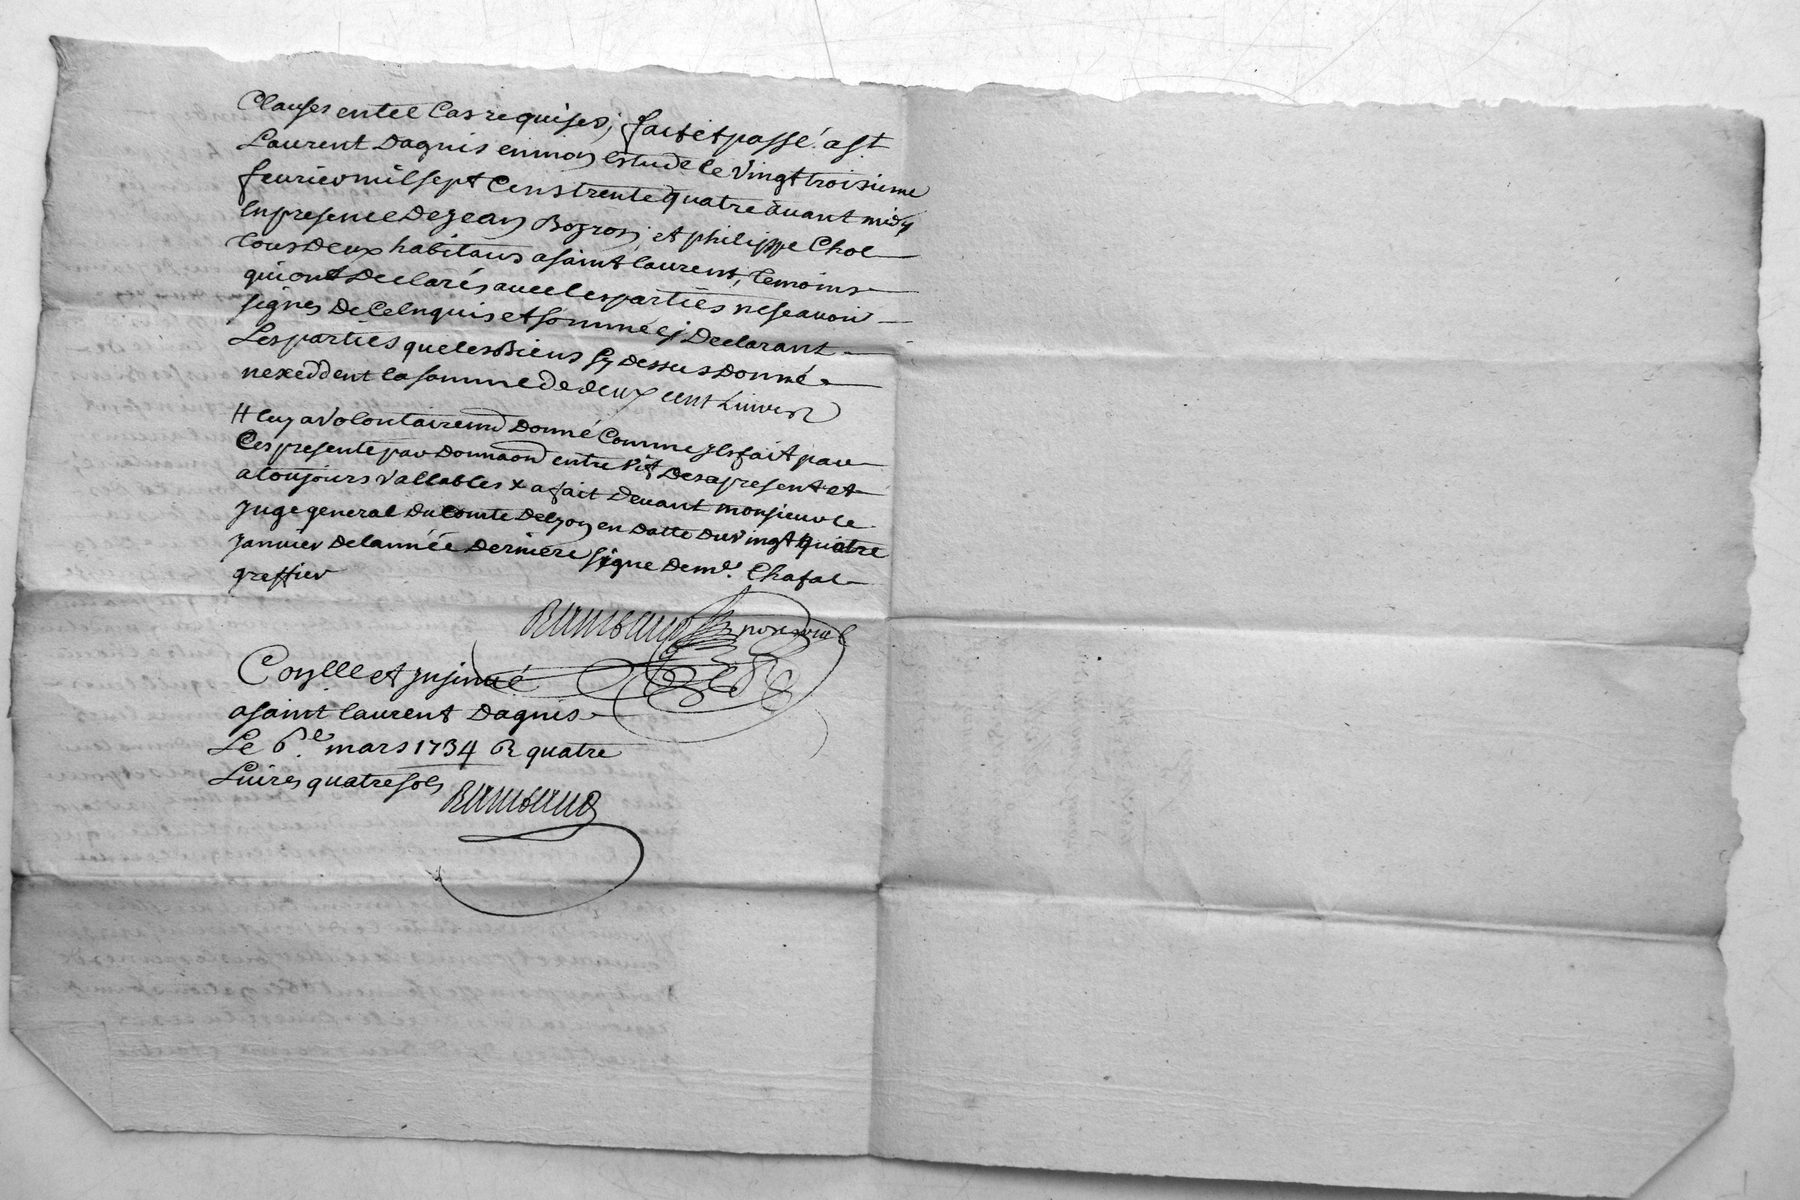 Clauses entel Cas requises; fait et passé a st
Laurent Dagnis en mon estude le vingt troisieme
feurier mil sept Cens trente quatre auant midy
En presence De Jean Bozron, et philippe Chol
tous Deux habitans a saint laurent, temoins
qui ont Declarés auec les parties ne scauoir
signes De Ce Enquis et sommées Declarant
Les parties que les Biens Cy Dessus Donné
nexeddent la somme de deux cent Liures
# luy a Volontairemt Donné Comme Jls fait par
Ces presente par Donnaon entre vifs Des a present et
a toujours Vallables x a fait Deuant monsieur le
Juge general Du Comte De Lyon en Datte Du vingt quatre
Janvier De lannée Derniere signe De me. Chafal
greffier
Rambaud no.re royal
Conlle et Jnsinué
a saint laurent Dagnis
Le 6.e mars 1734 R quatre
Liures quatre sols
Rambaud